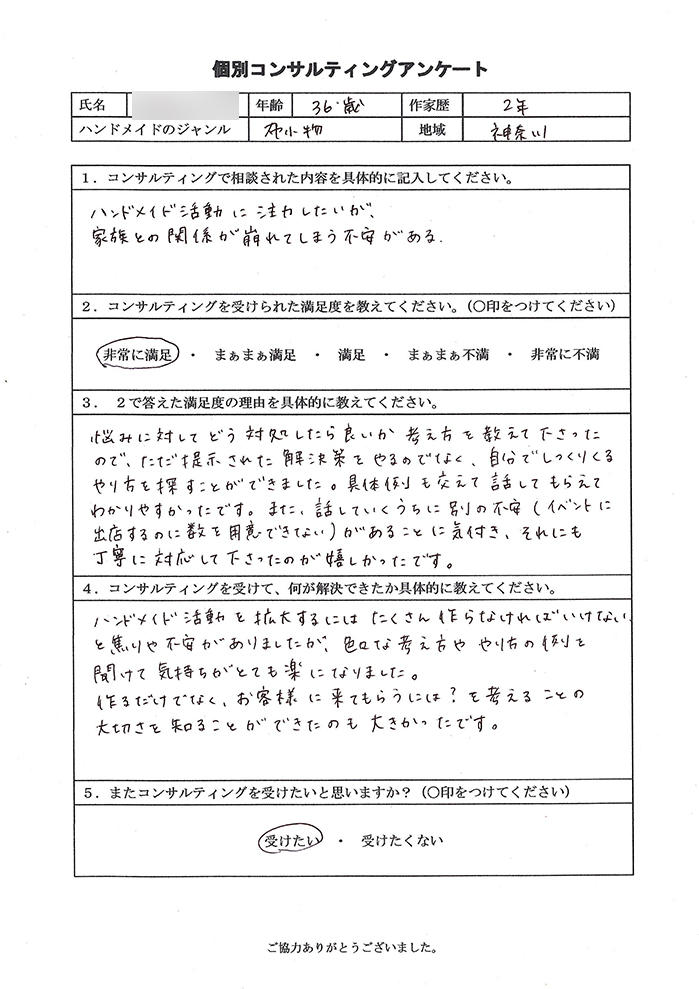 個別コンサルティングアンケート
氏名 年齢 36歳 作家歴 2年
ハンドメイドのジャンル 布小物 地域 神奈川
1．コンサルティングで相談された内容を具体的に記入してください。
ハンドメイド活動に注力したいが、
家族との関係が崩れてしまう不安がある.
2．コンサルティングを受けられた満足度を教えてください。（〇印をつけてください）
非常に満足 ・ まぁまぁ満足 ・ 満足 ・ まぁまぁ不満 ・ 非常に不満
3． 2で答えた満足度の理由を具体的に教えてください。
悩みに対してどう対処したら良いか考え方を教えて下さった
ので、ただ提示された解決策をやるのでなく、自分でしっくりくる
やり方を探すことができました。具体例も交えて話してもらえて
わかりやすかったです。また、話していくうちに別の不安（イベントに
出店するのに数を用意できない）があることに気付き、それにも
丁寧に対応して下さったのが嬉しかったです。
4．コンサルティングを受けて、何が解決できたか具体的に教えてください。
ハンドメイド活動を拡大するにはたくさん作らなければいけない
と焦りや不安がありましたが、色々な考え方ややり方の例を
聞けて気持ちがとても楽になりました。
作るだけでなく、お客様に来てもらうには？を考えることの
大切さを知ることができたのも大きかったです。
5．またコンサルティングを受けたいと思いますか？（〇印をつけてください）
受けたい ・ 受けたくない
ご協力ありがとうございました。